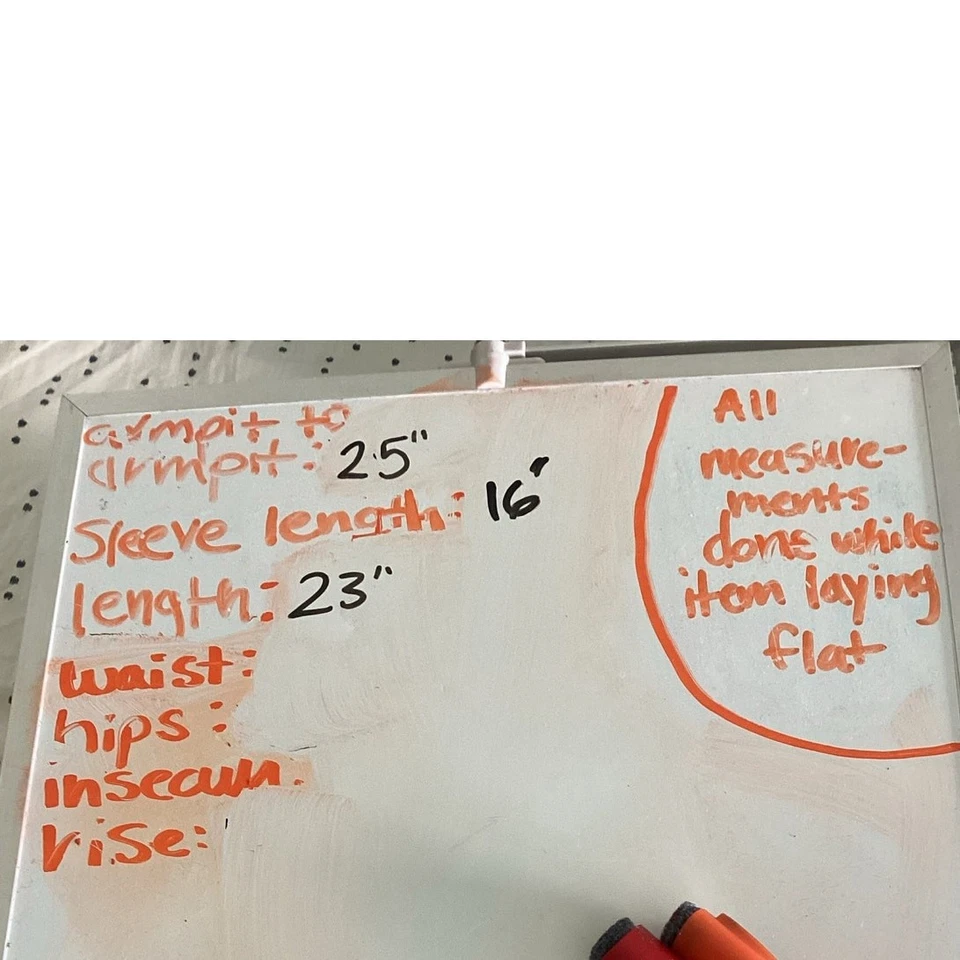 armpit to
armpit: 25"
Sleeve length: 16"
length: 23"
waist:
hips:
insecum.
rise:
All
measure-
ments
done while
item laying
flat